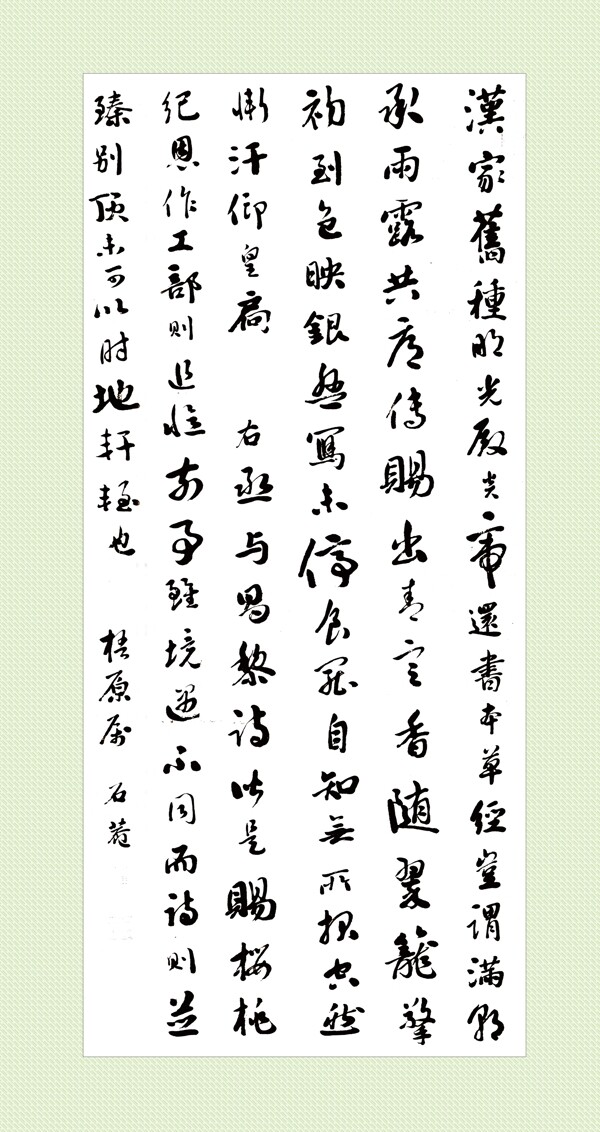 漢家舊種明光殿炎帝還書本草經豈謂滿朝
承雨露共看傳賜出青冥香隨翠籠擎
初到色映銀盤寫未停食罷自知無所報空然
慚汗仰皇扃 右丞与昌黎詩皆是賜櫻桃
紀恩作工部則追憶前事雖境遇不同而詩則並
臻別頂未可以时地軒輊也 梧原屬 石菴